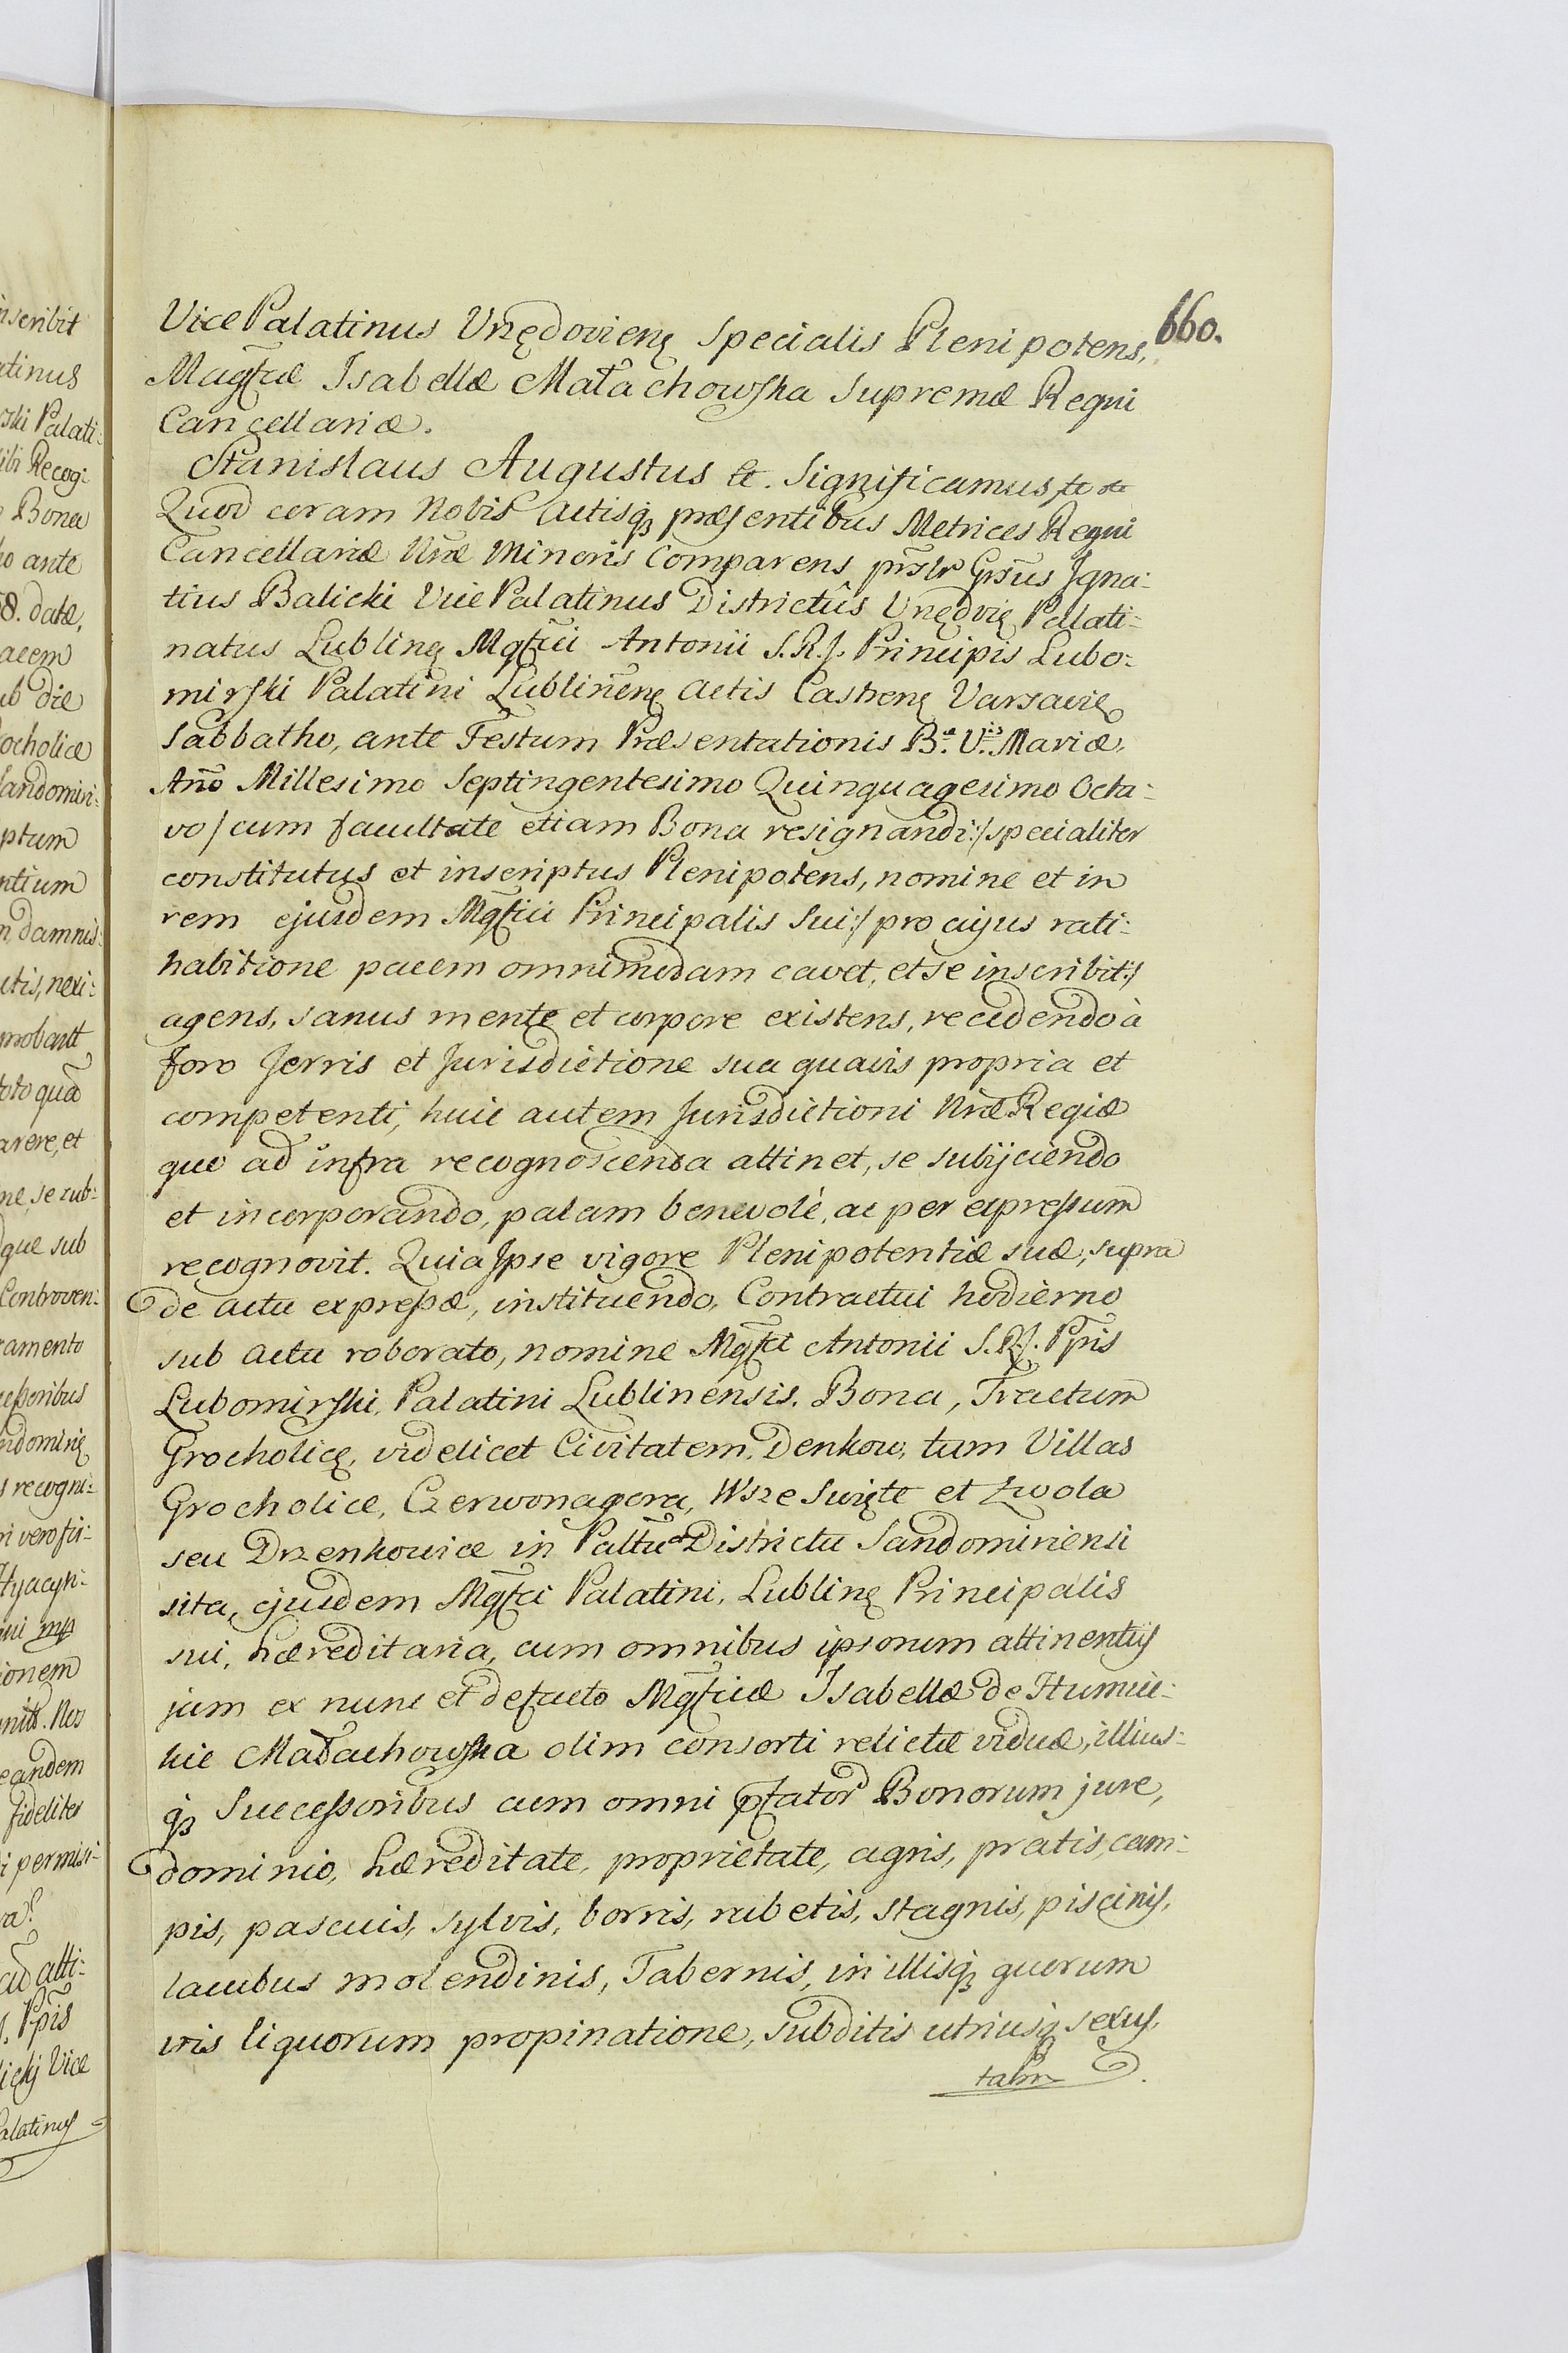 660.
Vice Palatinus Urzędovienę specialis Plenipotens,
Magſtæ Isabellæ Małachowſka Supremæ Regni
Cancellariæ.
Stanislaus Augustus &. Significamus
Quod coram Nobis Actisqꝫ præſentibus Metrices Regni
Cancellariæ Nræ Minoris Comparens Grsus Igna:
tius Balicki Vice Palatinus Districtûs Palati:
natus Lublinę Mgſici Antonii S.R.J. Principis Lubo:
mirſki Palatini Lublinenę Actis Castrenę Varsavię
Sabbatho, ante Festum Præsentationis B.æ V.is Mariæ,
Año Millesimo Septingentesimo Quinquagesimo Octa:
vo/ cum facultate etiam Bona resignandi:/ specialiter
constitutus et inscriptus Plenipotens, nomine et in
rem ejusdem Mgſici Principalis Sui:/ pro cujus rati:
habitione pacem omnimodam cavet, et se inscribit:/
agens, sanus mente et corpore existens, recedendo à
foro Jerris et Jurisdictione sua quavis propria et
competenti, huic autem Jurisdictioni Nræ Regiæ
quo ad infra recognoscenda attinet, se subijciendo
et incorporando, palam benevolè, ac per expreſsum
recognovit. Quia Ipse vigore Plenipotentiæ suæ, supra
de actu expreſsæ, instituendo, Contractui hodierno
sub actu roborato, nomine Mgſci Antonii S.R.J. Ppis
Lubomirſki, Palatini Lublinensis. Bona, Tractum
Grocholicę, videlicet Civitatem, Denkow, tum Villas
Grocholice, Czerwonagora, Wsze Swięte et Zwola
seu Drzenkowice in Paltu et Districtu Sandomiriensi
sita, ejusdem Mgſci Palatini, Lublinę Principalis
sui, hæreditaria, cum omnibus ipsorum attinentijs
jam ex nunc et defacto Mgſicæ Isabellæ de Humiec:
kie Małachowſka olim consorti relictæ viduæ, illius:
qꝫ Succeſsoribus cum omni Bonorum jure,
dominio, hæreditate, proprietate, agris, pratis, cam:
pis, pascuis, sylvis, borris, rubetis, stagnis, piscinis,
lacubus molendinis, Tabernis, in illisqꝫ quorum
vis liquorum propinatione, subditis utriusqꝫ sexus,
tabm